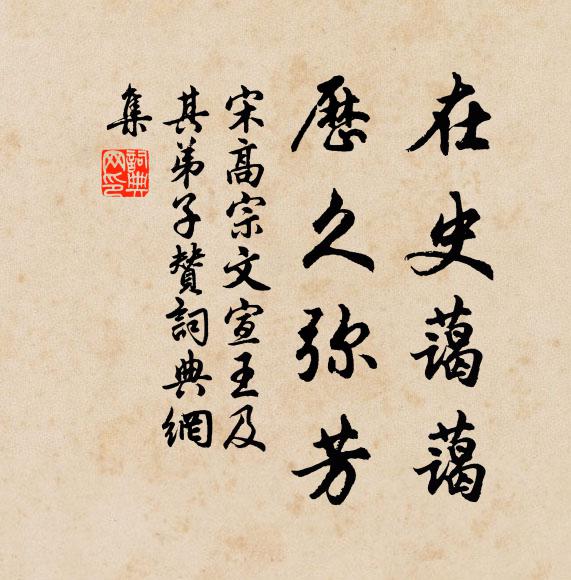 在史藹藹
歷久弥芳
宋高宗文宣王及
其弟子贊詞典網
集
詞典
网印